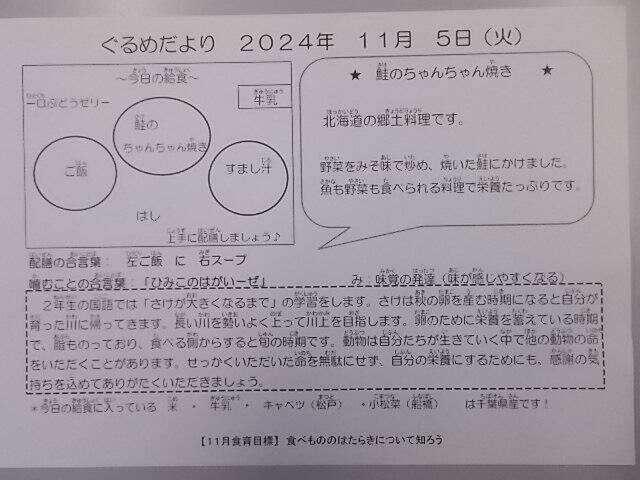 ぐるめだより　２０２４年　１１月　５日（火）
～今日の給食～
一口ぶどうゼリー
牛乳
鮭の
ちゃんちゃん焼き
ご飯
すまし汁
はし
上手に配膳しましょう♪
★　鮭のちゃんちゃん焼き　★
北海道の郷土料理です。
野菜をみそ味で炒め、焼いた鮭にかけました。
魚も野菜も食べられる料理で栄養たっぷりです。
配膳の合言葉：　左ご飯　に　右スープ
噛むことの合言葉：「ひみこのはがいーぜ」　み：味覚の発達（味が感じやすくなる）
２年生の国語では「さけが大きくなるまで」の学習をします。さけは秋の卵を産む時期になると自分が
育った川に帰ってきます。長い川を勢いよく上って川上を目指します。卵のために栄養を蓄えている時期
で、脂ものっており、食べる側からすると旬の時期です。動物は自分たちが生きていく中で他の動物の命
をいただくことがあります。せっかくいただいた命を無駄にせず、自分の栄養にするためにも、感謝の気
持ちを込めてありがたくいただきましょう。
＊今日の給食に入っている　米　・牛乳　・キャベツ（松戸）　・小松菜（船橋）　は千葉県産です！
【11月食育目標】食べもののはたらきについて知ろう